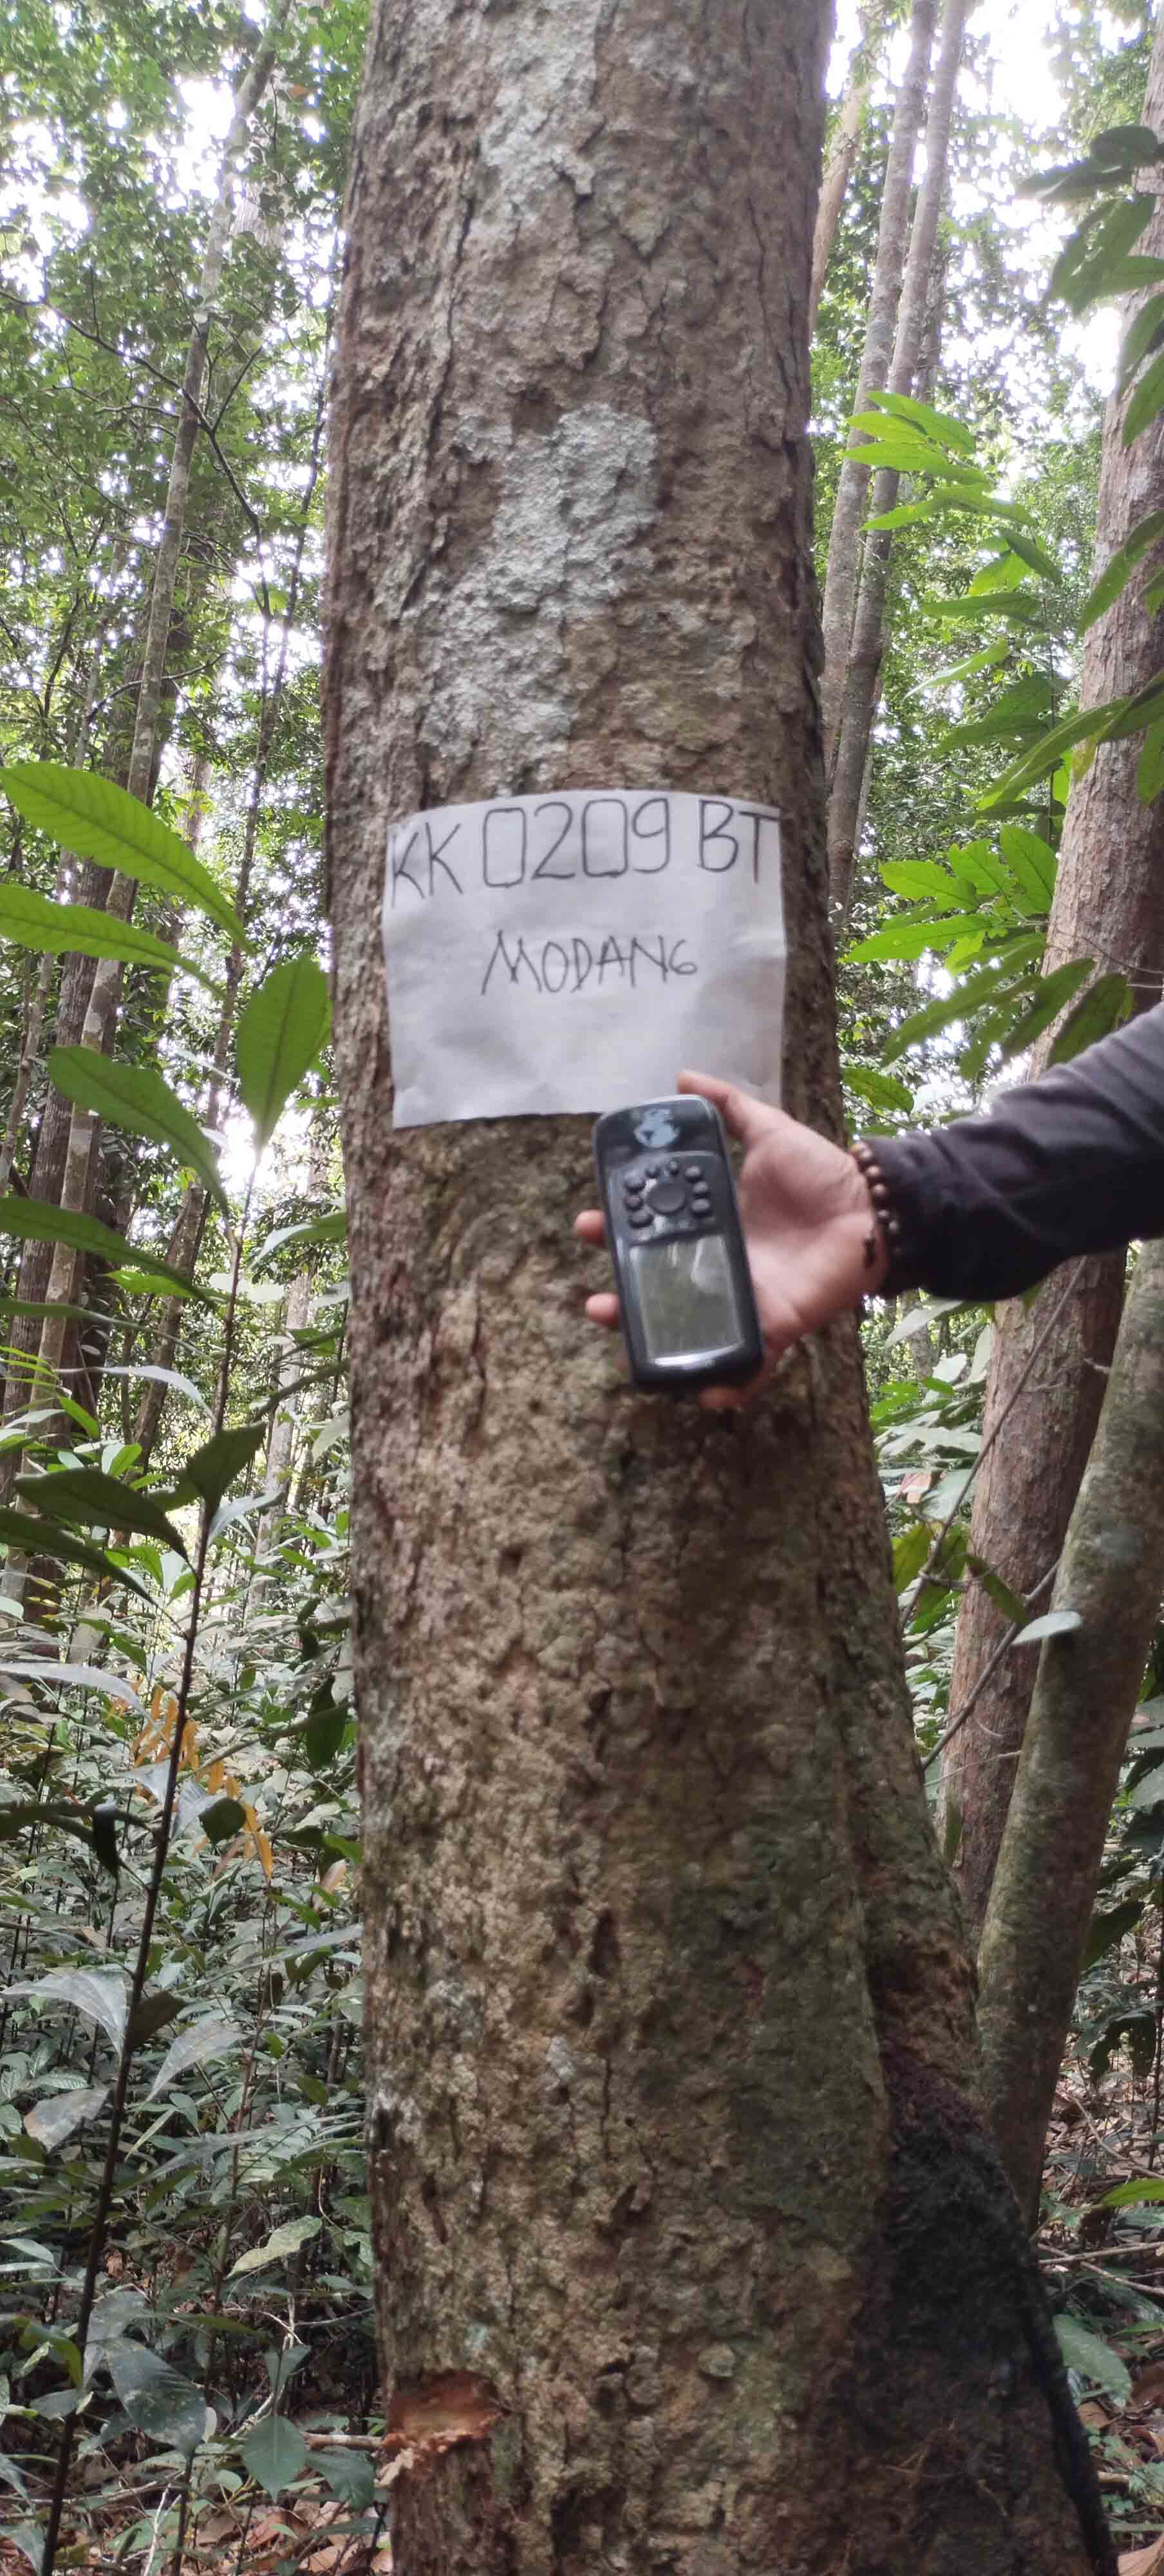 KK 0209 BT
MODANG